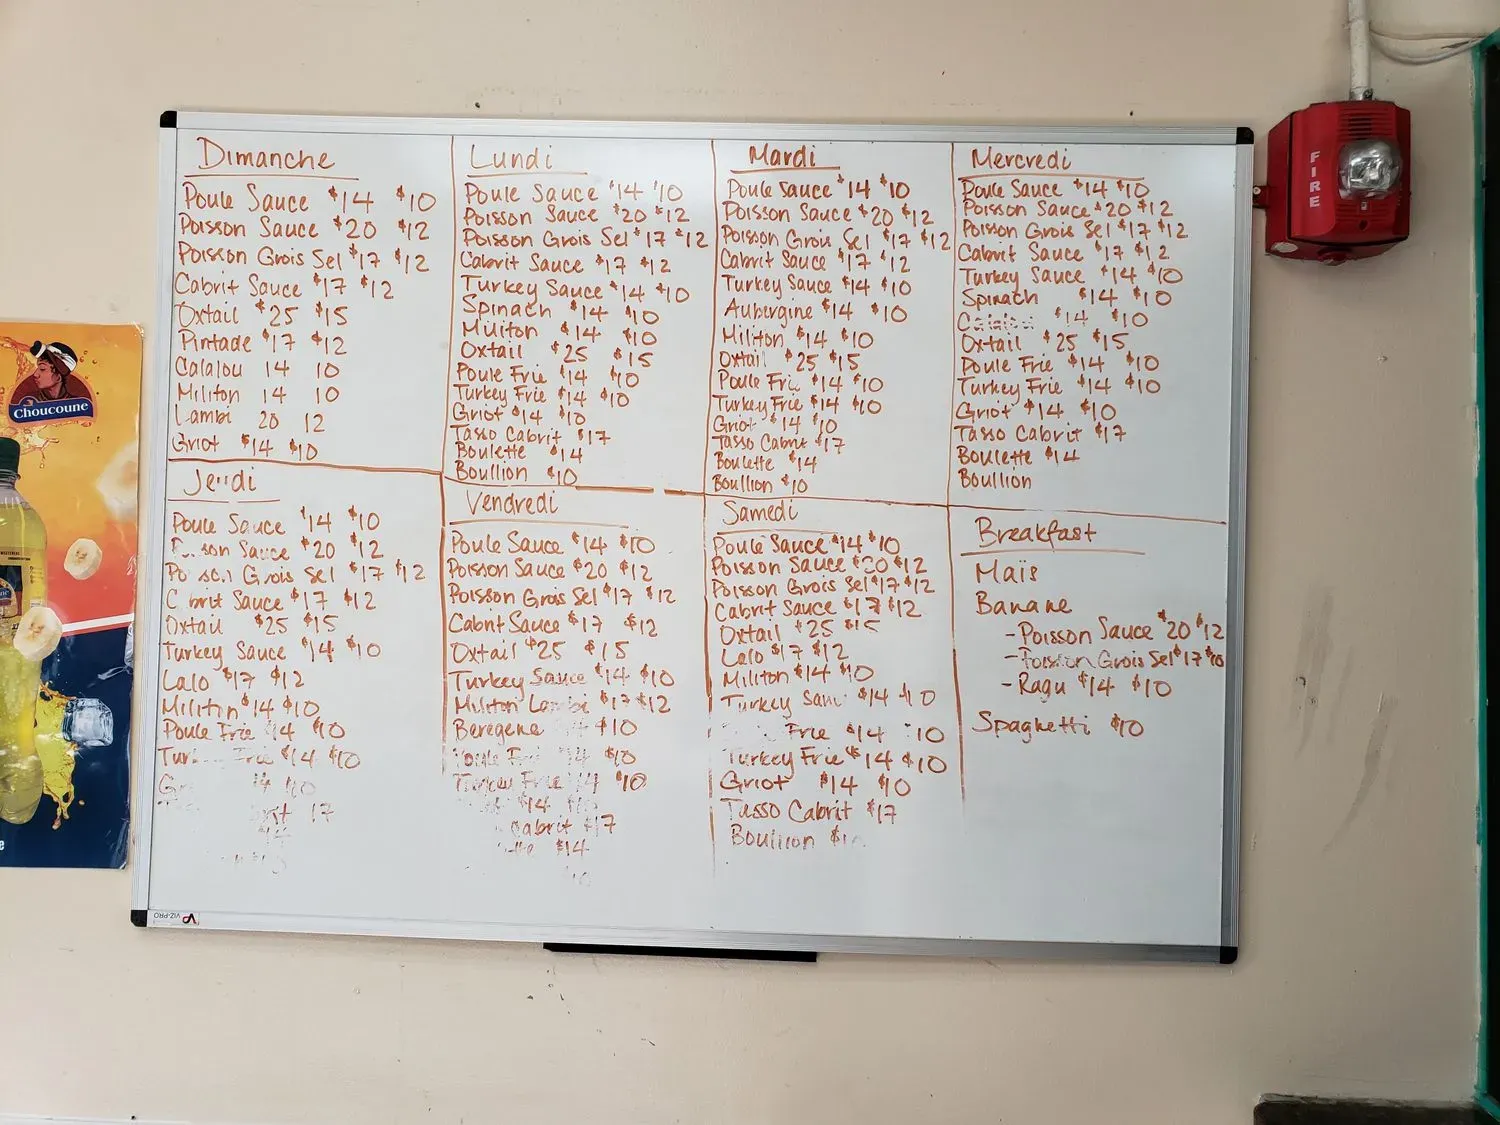 Dimanche
Poule Sauce $14 $10
Poisson Sauce $20 $12
Poisson Grois Sel $17 $12
Cabrit Sauce $17 $12
Oxtail $25 $15
Pintade $17 $12
Calalou 14 10
Militon 14 10
Lambi 20 12
Griot $14 $10
Lundi
Poule Sauce $14 $10
Poisson Sauce $20 $12
Poisson Grois Sel $17 $12
Cabrit Sauce $17 $12
Turkey Sauce $14 $10
Spinach $14 $10
Militon $14 $10
Oxtail $25 $15
Poule Frie $14 $10
Turkey Frie $14 $10
Griot $14 $10
Tasso Cabrit $17
Boulette $14
Boullion $10
Mardi
Poule Sauce $14 $10
Poisson Sauce $20 $12
Poisson Grois Sel $17 $12
Cabrit Sauce $17 $12
Turkey Sauce $14 $10
Aubergine $14 $10
Militon $14 $10
Oxtail $25 $15
Poule Frie $14 $10
Turkey Frie $14 $10
Griot $14 $10
Tasso Cabrit $17
Boulette $14
Boullion $10
Mercredi
Poule Sauce $14 $10
Poisson Sauce $20 $12
Poisson Grois Sel $17 $12
Cabrit Sauce $17 $12
Turkey Sauce $14 $10
Spinach $14 $10
Calalou $14 $10
Oxtail $25 $15
Poule Frie $14 $10
Turkey Frie $14 $10
Griot $14 $10
Tasso Cabrit $17
Boulette $14
Boullion
Jeudi
Poule Sauce $14 $10
Sauce $20 $12
Grois Sel $17 $12
Cabrit Sauce $17 $12
Oxtail $25 $15
Turkey Sauce $14 $10
Lalo $17 $12
Militon $14 $10
Poule Frie $14 $10
Frie $14 $10
14 $10
17
Vendredi
Poule Sauce $14 $10
Poisson Sauce $20 $12
Poisson Grois Sel $17 $12
Cabrit Sauce $17 $12
Oxtail $25 $15
Turkey Sauce $14 $10
Militon Lambi $17 $12
Beregene $10
Poule Frie 14 $10
Turkey Frie 14 $10
$14 $10
Cabrit $17
$14
Samedi
Poule Sauce $14 $10
Poisson Sauce $20 $12
Poisson Grois Sel $17 $12
Cabrit Sauce $17 $12
Oxtail $25 $15
Lalo $17 $12
Militon $14 $10
Turkey $14 $10
Frie $14 $10
Turkey Frie $14 $10
Griot $14 $10
Tasso Cabrit $17
Boullion
Breakfast
Maïs
Banane
-Poisson Sauce $20 $12
-Poisson Grois Sel $17
-Ragu $14 $10
Spaghetti $10
VIZ-PRO
Choucoune
FIRE